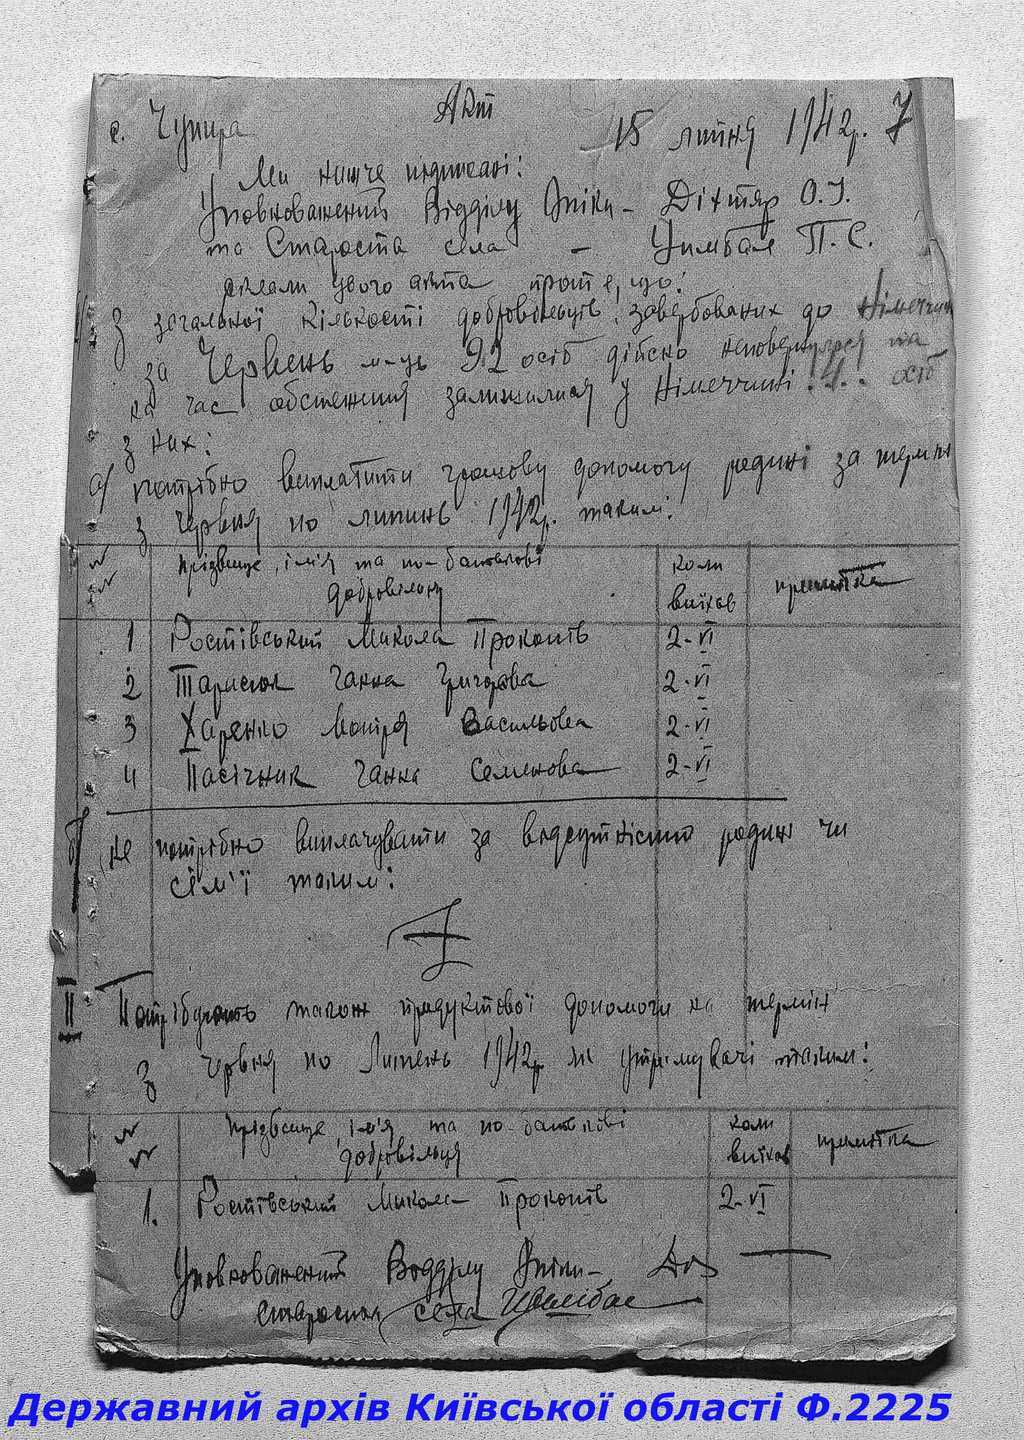 Акт
с. Чупира 15 липня 1942р. 7
Ми нижче підписані:
Уповноважений Відділу Опіки – Діхтяр О.І.
та Староста села – Цимбал П.С.
склали цього акта проте, що:
З загальної кількості добровільців, завербованих до Німеччини
за Червень м-ць 92 осіб дійсно неповернулися та
на час обстеження залишилися у Німеччині 4 осіб
з них:
а) потрібно виплатити грошову допомогу родині за термін
з червня по липень 1942р. таким:
№№ Прізвище, ім'я та по-батькові добровільця коли виїхав примітка
1 Ростівський Микола Прокопів 2-VI
2 Тарасюк Ганна Григорова 2-VI
3 Харенко Мотря Васильовна 2-VI
4 Пасічник Ганна Семенова 2-VI
б) не потрібно виплачувати за відсутністю родин чи
сім'ї таким:
II Потрібують також продуктової допомоги на термін
з червня по Липень 1942р. утримувачі таким:
№№ Прізвище, ім'я та по-батькові добровільця коли виїхав примітка
1. Ростівський Микола Прокопів 2-VI
Уповноважений Відділу Опіки –
Староста села Цимбал
Державний архів Київської області Ф.2225